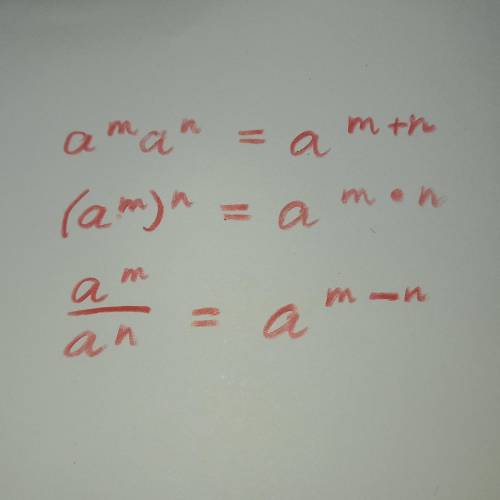 a^m a^n = a^{m+n}
(a^m)^n = a^{m•n}
\frac{a^m}{a^n} = a^{m-n}